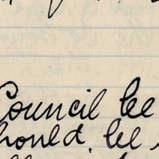 Council be
should, be